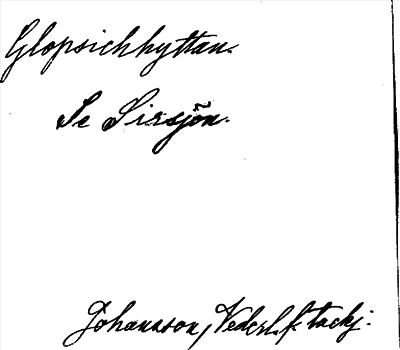 Glopsichhyttan.
Se Sirsjön.
Johansson, Nederl. f. tackj.